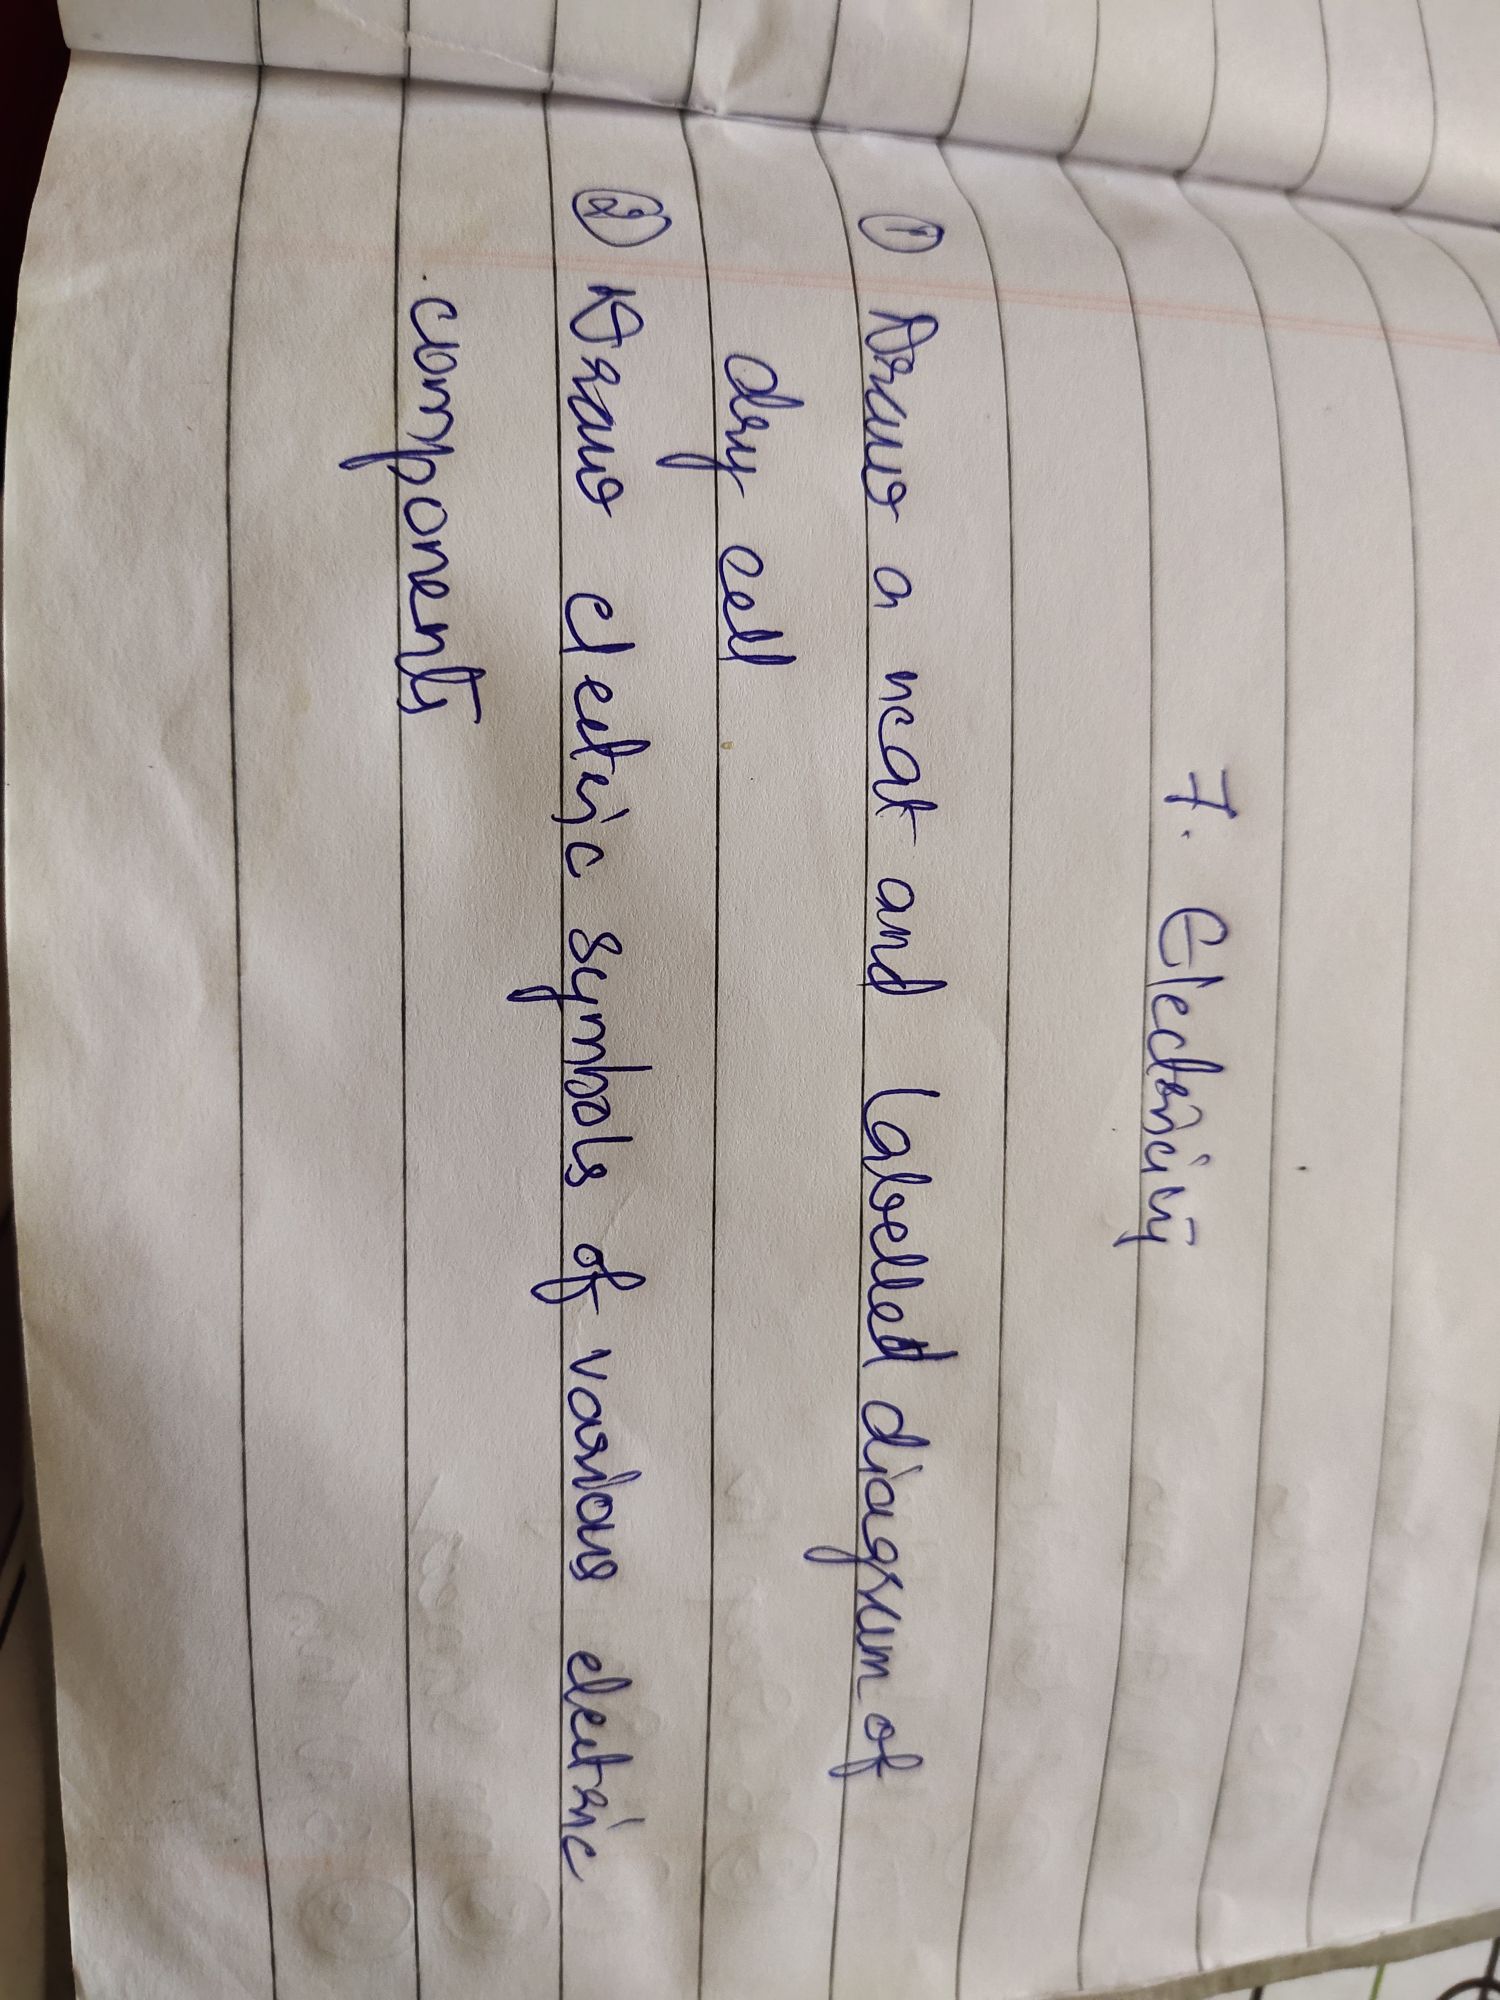 7. Electricity
① Draw a neat and labelled diagram of
dry cell
② Draw electric symbols of various electric
components